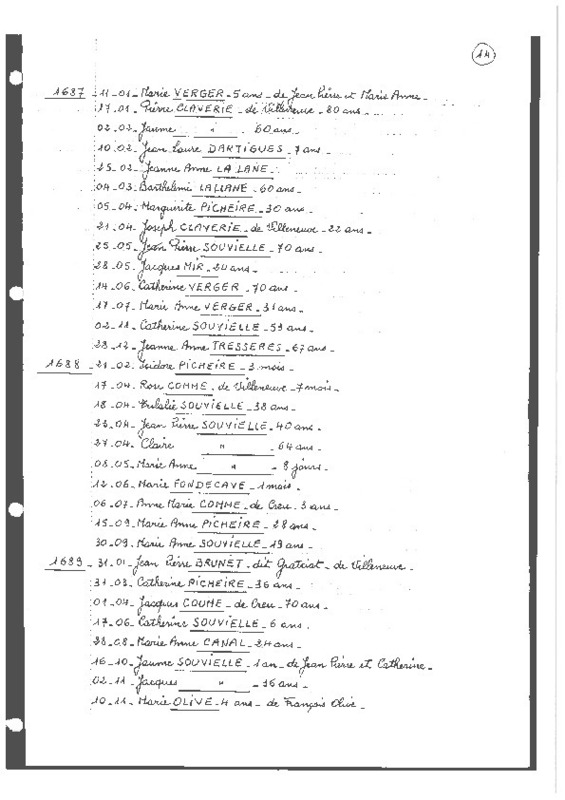 14
1687 - 11-01 - Marie VERGER - 5 ans - de Jean Pierre et Marie Anne -
17-01 - Pierre CLAVERIE - de Villeneuve - 80 ans -
02-02 - Jaume " 60 ans -
10-02 - Jean Laure DARTIGUES - 7 ans -
25-02 - Jeanne Anne LALANE -
04-03 - Barthelemi LALLANE - 60 ans -
05-04 - Marguerite PICHEIRE - 30 ans -
21-04 - Joseph CLAVERIE - de Villeneuve - 22 ans -
25-05 - Jean Pierre SOUVIELLE - 70 ans -
28-05 - Jacques MIR - 20 ans -
14-06 - Catherine VERGER - 70 ans -
17-07 - Marie Anne VERGER - 31 ans -
02-11 - Catherine SOUVIELLE - 59 ans -
28-12 - Jeanne Anne TRESSERES - 67 ans -
1688 - 21-02 - Isidore PICHEIRE - 3 mois -
17-04 - Rose COMME - de Villeneuve - 7 mois -
18-04 - Eulalie SOUVIELLE - 38 ans -
23-04 - Jean Pierre SOUVIELLE - 40 ans -
27-04 - Claire " - 64 ans -
08-05 - Marie Anne " - 8 jours -
12-06 - Marie FONDECAVE - 1 mois -
06-07 - Anne Marie COMME - de Creu - 3 ans -
15-09 - Marie Anne PICHEIRE - 28 ans -
30-09 - Marie Anne SOUVIELLE - 19 ans -
1689 - 31-01 - Jean Pierre BRUNET - dit - de Villeneuve -
31-03 - Catherine PICHEIRE - 36 ans -
01-04 - Jacques COUME - de Creu - 70 ans -
17-06 - Catherine SOUVIELLE - 6 ans -
28-08 - Marie Anne CANAL - 24 ans -
16-10 - Jaume SOUVIELLE - 1 an - de Jean Pierre et Catherine -
02-11 - Jacques " - 16 ans -
10-11 - Marie OLIVE - 4 ans - de François Olive -